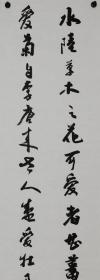 水陸草木之花可愛者甚蕃
愛菊自李唐來世人甚愛牡丹